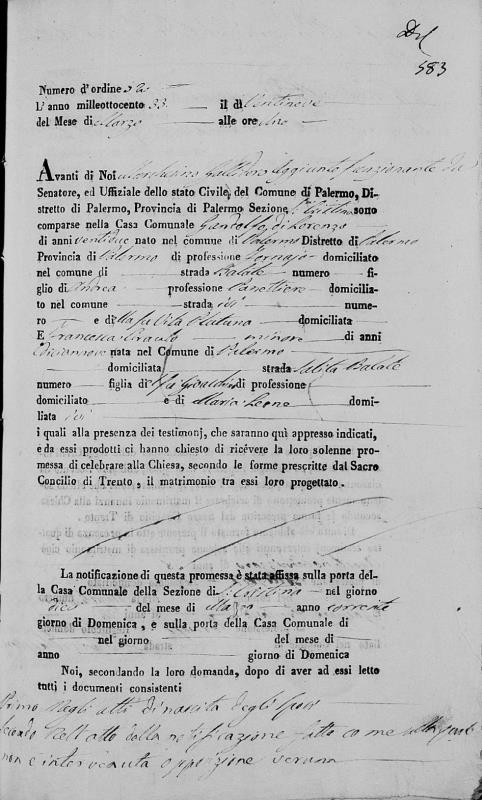 583
Numero d'ordine
L'anno milleottocento 33 il dì Ventinove
del Mese di Marzo alle ore
Avanti di Noi Aggiunto funzionante da
Senatore, ed Uffiziale dello stato Civile, del Comune di Palermo, Di-
stretto di Palermo, Provincia di Palermo Sezione S. Cristina sono
comparse nella Casa Comunale Gandolfo, di Lorenzo
di anni ventidue nato nel comune di Palermo Distretto di Palermo
Provincia di Palermo di professione Fornajo domiciliato
nel comune di strada Balate numero fi-
glio di Andrea professione Panettiere domicilia-
to nel comune strada ivi nume-
ro e di Vita Platano domiciliata
E Francesca minore di anni
diciannove nata nel Comune di Palermo
domiciliata strada Salita Balate
numero figlia di di professione
domiciliato e di Maria Leone domi-
liata ivi
i quali alla presenza dei testimonj, che saranno quì appresso indicati,
e da essi prodotti ci hanno chiesto di ricévere la loro solenne pro-
messa di celebrare alla Chiesa, secondo le forme prescritte dal Sacro
Concilio di Trento, il matrimonio tra essi loro progettato.
La notificazione di questa promessa è stata affissa sulla porta del-
la Casa Comunale della Sezione di S. Cristina nel giorno
dieci del mese di Marzo anno corrente
giorno di Domenica, e sulla porta della Casa Comunale di
nel giorno del mese di
anno giorno di Domenica
Noi, secondando la loro domanda, dopo di aver ad essi letto
tutti i documenti consistenti
Primo Negli atti di nascita degli sposi
secondo Nell'atto della notificazione fatta come
non è intervenuta opposizione veruna